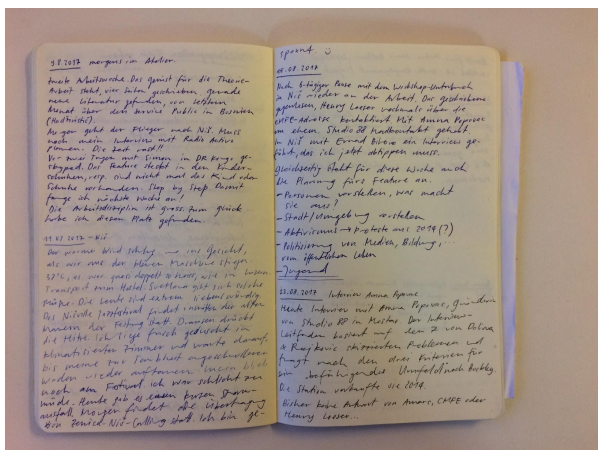 9.8.2017 morgens im Atelier.
Zweite Arbeitswoche. Das Gerüst für die Theorie-
Arbeit steht, vier Seiten geschrieben, gerade
neue Literatur gefunden, vor letztem
Monat über den Service Public in Bosnien
Morgen geht der Flieger nach Niš. Muss
noch mein Interview mit Radio Active
planen. Die Zeit rast!!
Vor zwei Tagen mit Simon in DR Kongo ge-
skyped. Das Feature steckt in den Kinder-
schuhen, resp. sind nicht mal das Kind oder
Schuhe vorhanden. Step by Step. Damit
fange ich nächste Woche an!
Die Arbeitsdisziplin ist gross. Zum Glück
habe ich diesen Platz gefunden.
11.08.2017 - Niš
Der warme Wind schlug mir ins Gesicht,
als wir aus der kleinen Maschine stiegen.
38°C, es war quasi doppelt so heiss, wie in Luzern.
Transport zum Hostel. Svetlana gibt sich solche
Mühe. Die Leute sind extrem liebenswürdig.
Das Nišville Jazzfestival findet innerhalb der alten
Mauern der Festung statt. Draussen drückt
die Hitze. Ich liege frisch geduscht im
klimatisierten Zimmer und warte darauf,
bis meine zur Sau heit angeschwollenen
Waden wieder auftauen. Waren
noch am Festival. Ich war schlicht zu
müde. Heute gab es einen kurzen Strom-
ausfall. Morgen findet die Übertragung
von Zenica-Niš-Calling statt. Ich bin ge-
spannt :)
08.2017
Nach 8-tägiger Pause mit dem Workshop-Unterbruch
in Niš wieder an der Arbeit. Das Geschriebene
gegengelesen, Henry Loeser nochmals über die
CMFE-Adresse kontaktiert. Mit Amina Popovac
im ehem. Studio 88 Kontakt gehabt.
In Niš mit Ervad ein Interview ge-
führt, das ich jetzt abtippen muss.
Gleichzeitig steht für diese Woche auch
die Planung fürs Feature an.
- Personen vorstellen, was macht
sie aus?
- Stadt/Umgebung vorstellen
- Aktivismus → Proteste aus 2014 (?)
- Politisierung von Medien, Bildung, ...
vom öffentlichen Leben
- Jugend
22.08.2017 Interview Amina Popovac
Heute Interview mit Amina Popovac, Gründerin
von Studio 88 in Mostar. Der Interview-
Leitfaden basiert auf den 2 von
& Rajkovic skizzierten Problemen und
fragt nach den drei Kriterien für
ein befähigendes Umfeld nach Buckley.
Die Station verkaufte sie 2014.
Bisher keine Antwort von Amarc, CMFE oder
Henry Loeser...